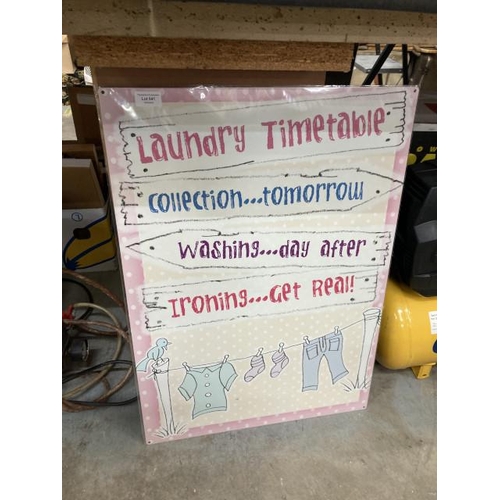 Laundry Timetable
Collection...tomorrow
Washing...day after
Ironing...Get Real!